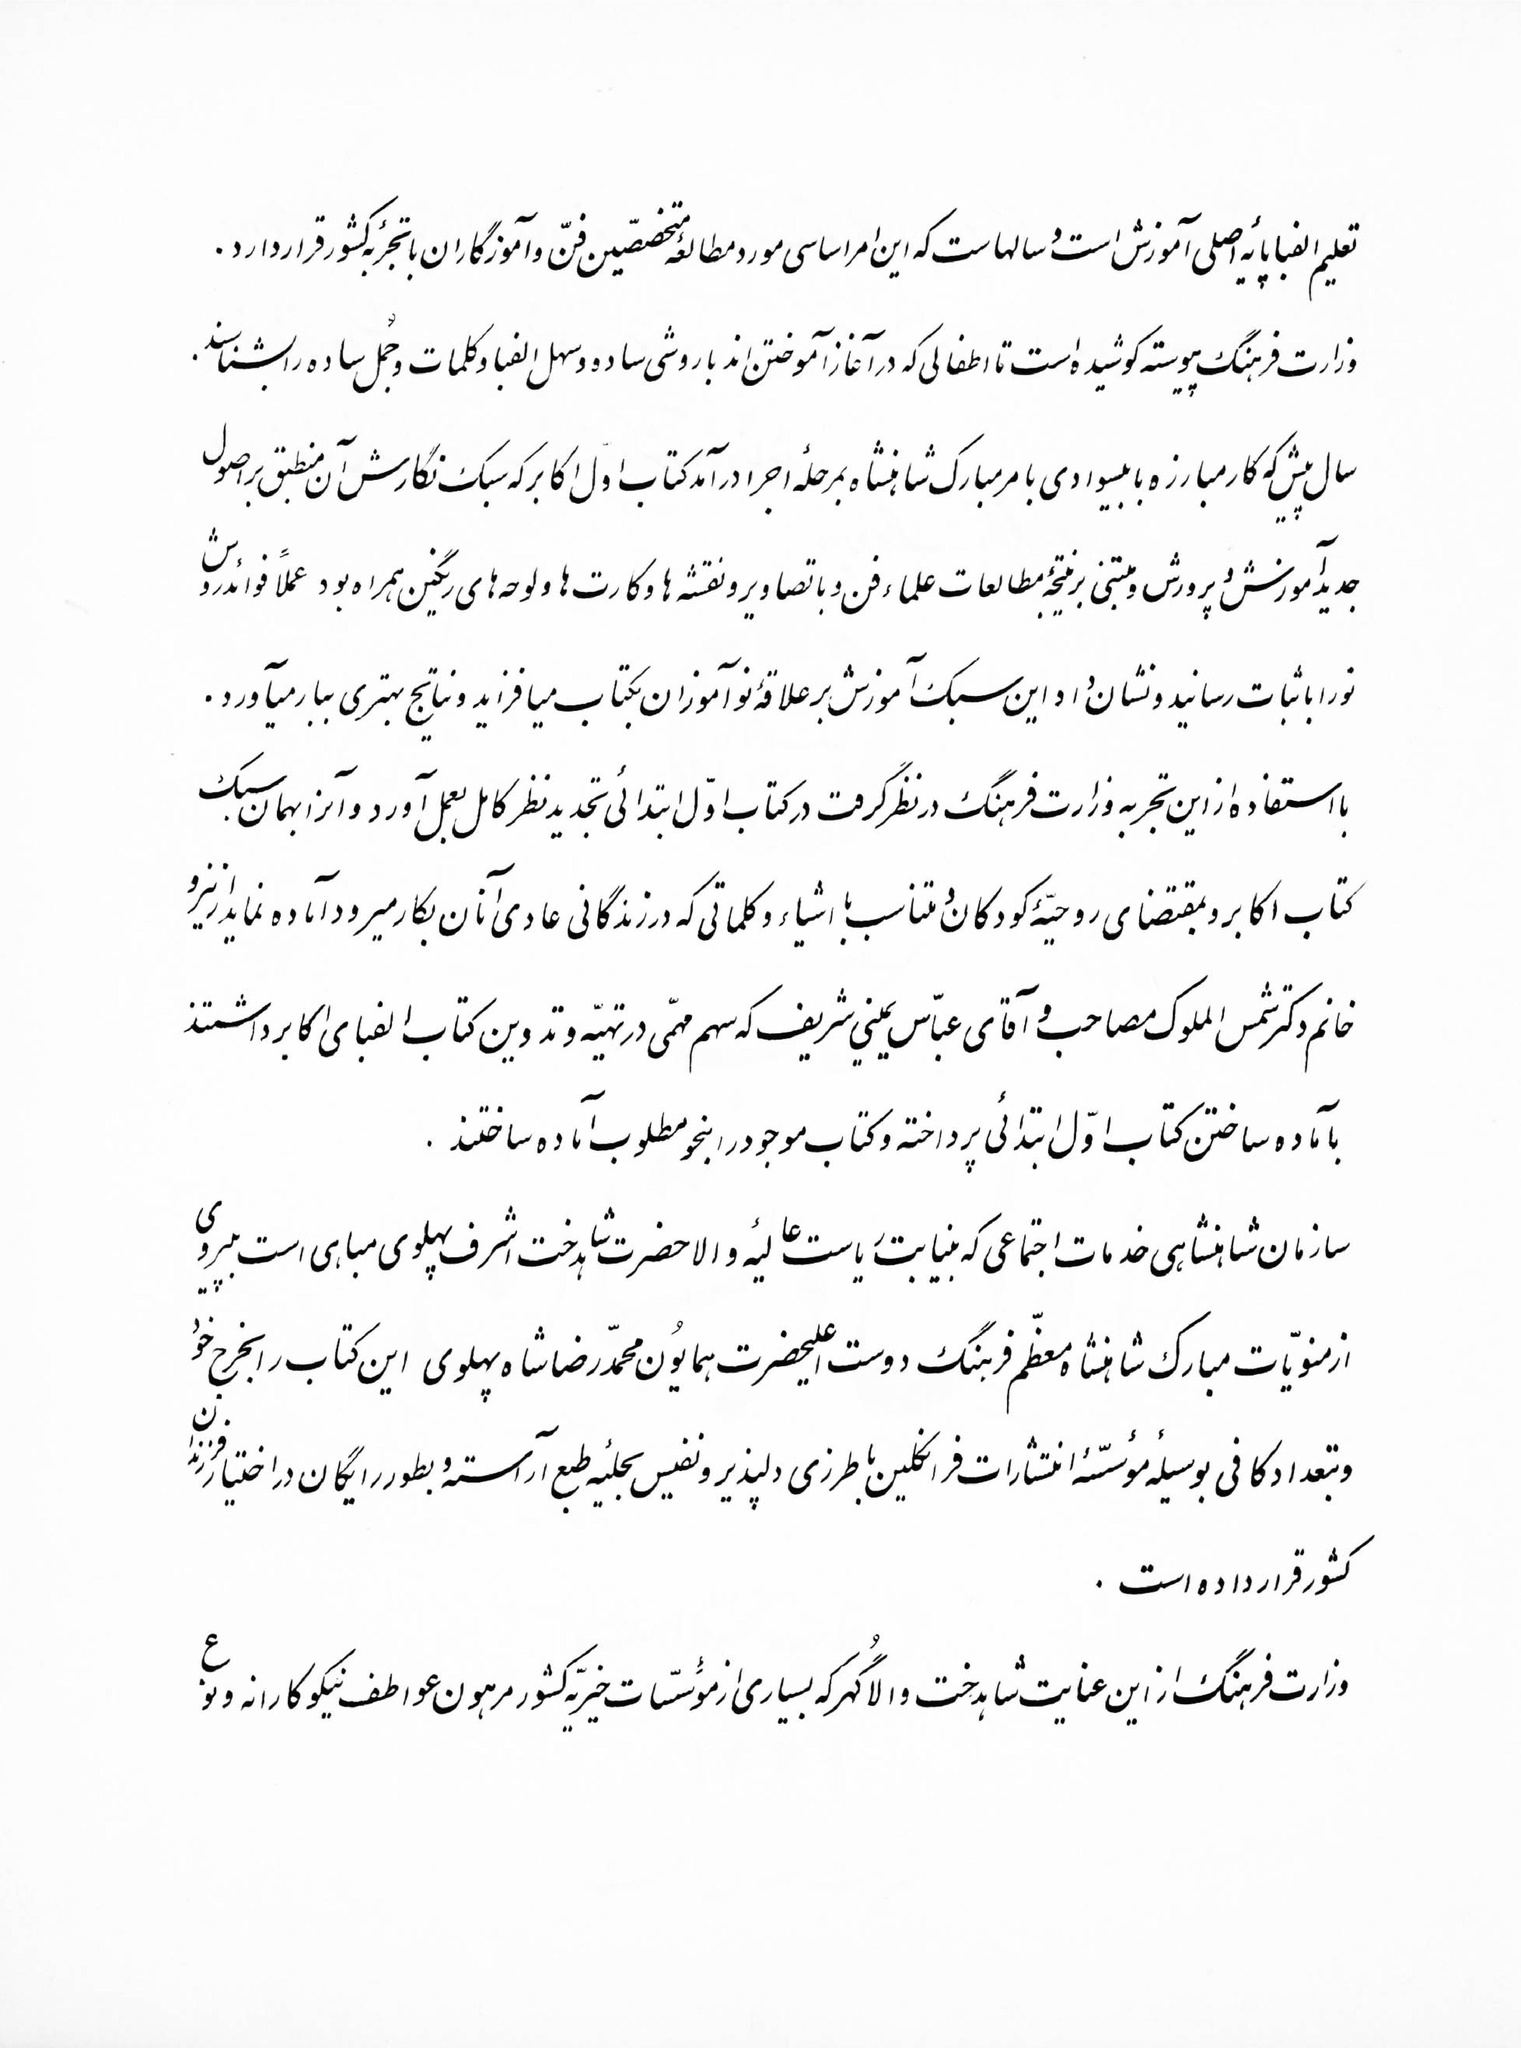 تعلیم الفبا پایهٔ اصلی آموزش است و سالهاست که این امر اساسی مورد مطالعهٔ متخصصّین فنّ و آموزگاران با تجربهٔ کشور قرار دارد .
وزارت فرهنگ پیوسته کوشیده است تا اطفالی که در آغاز آموختن اند با روشی ساده و سهل الفبا و کلمات و جُمل ساده را بشناسند .
سال پیش که کار مبارزه با بیسوادی بامر مبارک شاهنشاه بمرحلهٔ اجرا درآمد کتاب اوّل اکابر که سبک نگارش آن منطبق بر اصول
جدید آموزش و پرورش و مبتنی بر نتیجهٔ مطالعات علماء فن و با تصاویر و نقشه ها و کارت ها و لوحه های رنگین همراه بود عملاً فوائد روش
نو را باثبات رسانید و نشان داد این سبک آموزش بر علاقهٔ نوآموزان بکتاب میافزاید و نتایج بهتری ببار میآورد .
با استفاده از این تجربه وزارت فرهنگ در نظر گرفت در کتاب اوّل ابتدائی تجدید نظر کامل بعمل آورد و آنرا بهمان سبک
کتاب اکابر و بمقتضای روحیّهٔ کودکان و متناسب با اشیاء و کلماتی که در زندگانی عادی آنان بکار میرود آماده نماید از اینرو
خانم دکتر شمس الملوک مصاحب و آقای عبّاس یمینی شریف که سهم مهمّی در تهیّه و تدوین کتاب الفبای اکابر داشتند
بآماده ساختن کتاب اوّل ابتدائی پرداخته و کتاب موجود را بنحو مطلوب آماده ساختند .
سازمان شاهنشاهی خدمات اجتماعی که بنیابت ریاست عالیهٔ والاحضرت شاهدخت اشرف پهلوی مباهی است بپیروی
از منویّات مبارک شاهنشاه معظّم فرهنگ دوست اعلیحضرت همایوُن محمّدرضا شاه پهلوی این کتاب را بخرج خود
و بتعداد کافی بوسیلهٔ مؤسّسهٔ انتشارات فرانکلین با طرزی دلپذیر و نفیس بحلیهٔ طبع آراسته و بطور رایگان در اختیار فرزندان
کشور قرار داده است .
وزارت فرهنگ از این عنایت شاهدخت والاگُهر که بسیاری از مؤسّسات خیریّهٔ کشور مرهون عواطف نیکوکارانه و نوع